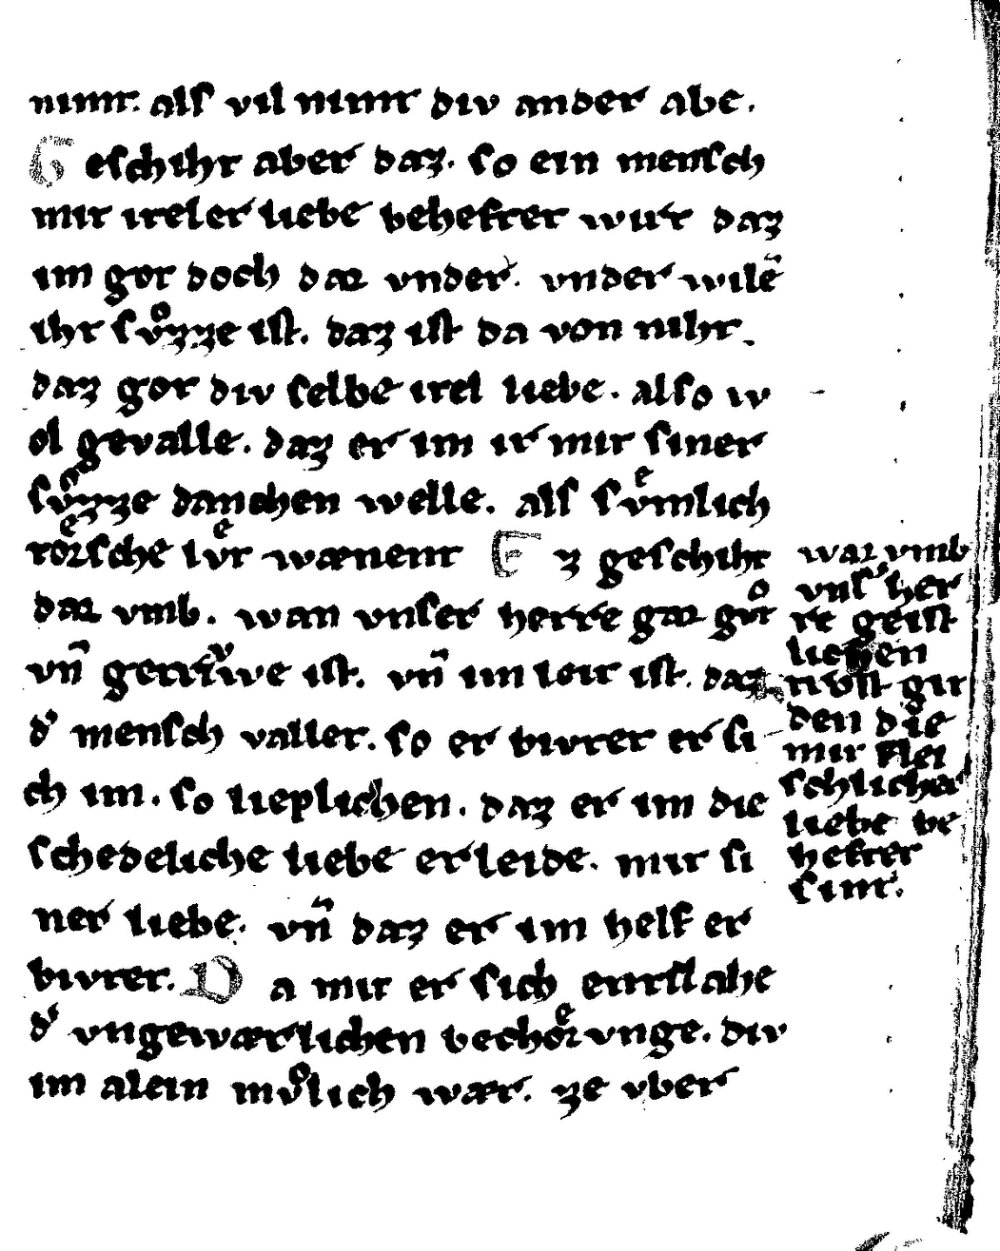 nimt. alſ vil nimt div ander abe.
Geſchiht aber daz. ſo ein menſch
mit iteler liebe beheftet wirt daz
im got doch dar vnder. vnder wilē
iht ſvͦzze iſt. daz iſt da von niht.
daz got div ſelbe itel liebe. alſo w
ol gevalle. daz er im ir mit ſiner
ſvͦzze danchen welle. alſ ſvͤmlich
toͤrſche lvͤt wænent Ez geſchiht
dar vmb. wan vnſer herre gar gvͦt
vn̄ getriwe iſt. vn̄ im leit iſt. daz
d' menſch vallet. ſo er bivtet er ſi
ch im. ſo lieplichen. daz er im die
ſchedeliche liebe er leide. mit ſi
ner liebe. vn̄ daz er im helf er
bivtet. Da mit er ſich entſlahe
d' vngewærlichen bechoͤrvnge. div
im alein mvͦlich wær. ze vber
war vmb
vnſ' her
re geiſt
lichen
rvͦſt git
den die
mit flei
ſchlicher
liebe be
heftet
ſint.